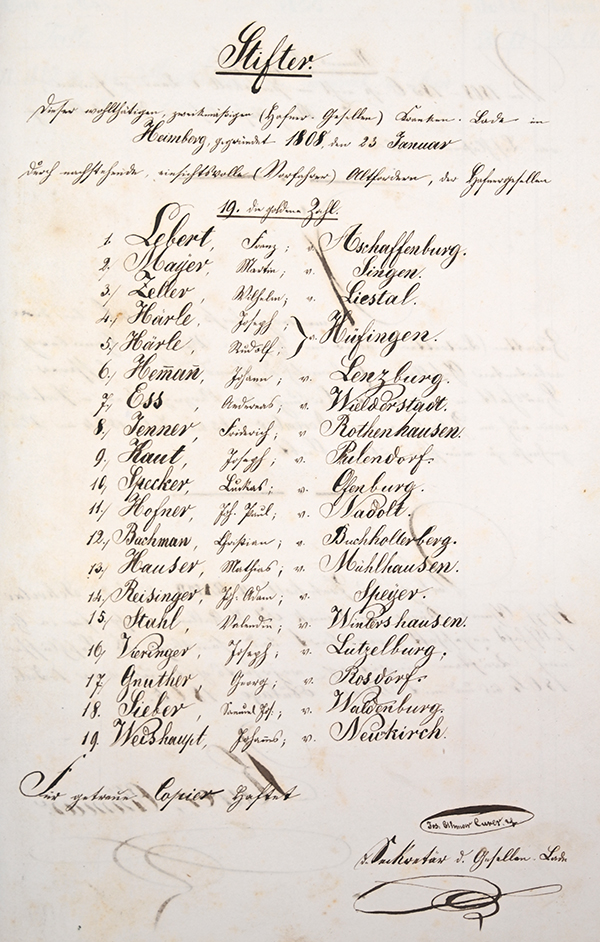 Stifter.
Dieser wohlthätigen, zweckmäßigen (Hafner-Gesellen) Kranken-Lade in
Heimberg, gegründet 1808, den 25 Januar
durch nachstehende, einsichtsvolle (Vorfahrer) Altfordern, der Hafnergesellen
19. die goldene Zahl.
1. Lebert, Franz; v. Aschaffenburg.
2. Mayer, Martin; v. Singen.
3. Zeller, Wilhelm; v. Liestal.
4. Härle, Joseph; } v. Hüfingen.
5. Härle, Rudolf;
6. Heman̄, Johann; v. Lenzburg.
7. Ess, Andereas; v. Wielderstadt.
8. Jenner, Friderich; v. Rothenhausen.
9. Haut, Joseph; v. Pulendorf.
10. Specker, Luckas; v. Ofenburg.
11. Hofner, Joh. Paul; v. Nadolt.
12. Bachman, Christian; v. Buchhollerberg.
13. Hauser, Mathias; v. Mühlhausen.
14. Reisinger, Joh. Adam; v. Speyer.
15. Stahl, Valendin; v. Wintershausen.
16. Vieringer, Joseph; v. Lutzelburg;
17. Gnuther, Georg; v. Rosdorf.
18. Sieber, Samuel Joh.; v. Waldenburg.
19. Weishaupt, Johannes; v. Neukirch.
Für getraue Copier haftet
Jos.
Seckretär d. Gesellen-Lade